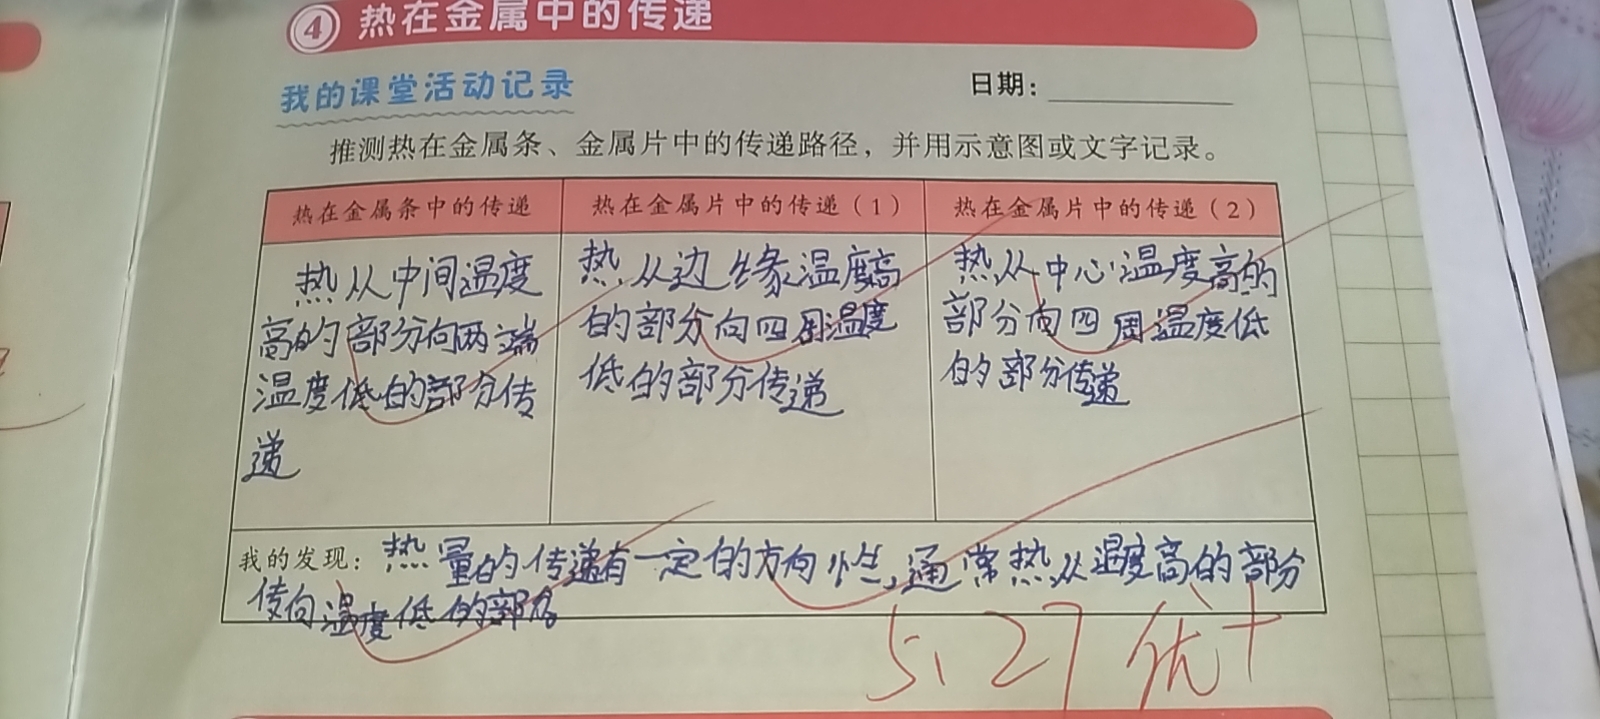 4 热在金属中的传递
我的课堂活动记录
日期：
推测热在金属条、金属片中的传递路径，并用示意图或文字记录。
热在金属条中的传递
热从中间温度
高的部分向两端
温度低的部分传
递
热在金属片中的传递（1）
热从边缘温度高
的部分向四周温度
低的部分传递
热在金属片中的传递（2）
热从中心温度高的
部分向四周温度低
的部分传递
我的发现：热量的传递有一定的方向性,通常热从温度高的部分
传向温度低的部分
5.27 优+